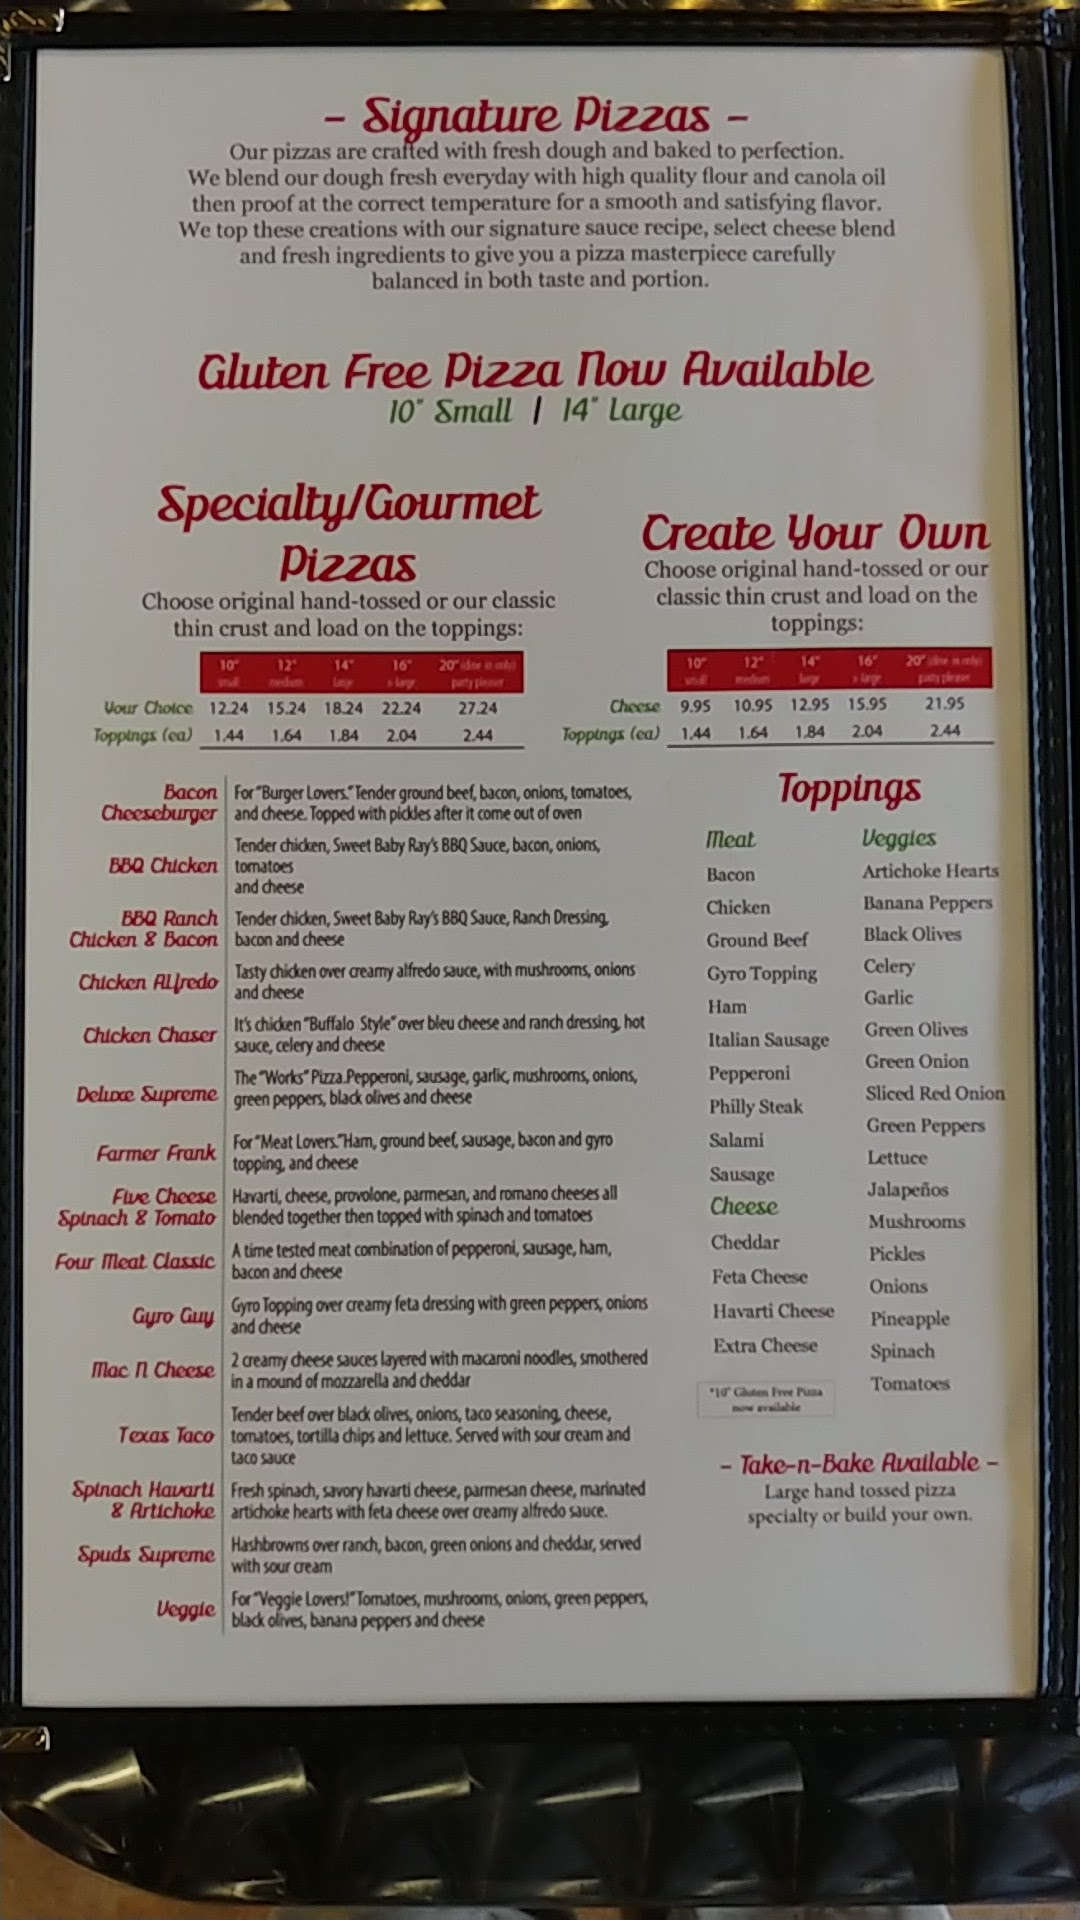 - Signature Pizzas -
Our pizzas are crafted with fresh dough and baked to perfection.
We blend our dough fresh everyday with high quality flour and canola oil
then proof at the correct temperature for a smooth and satisfying flavor.
We top these creations with our signature sauce recipe, select cheese blend
and fresh ingredients to give you a pizza masterpiece carefully
balanced in both taste and portion.
Gluten Free Pizza Now Available
10" Small | 14" Large
Specialty/Gourmet
Pizzas
Choose original hand-tossed or our classic
thin crust and load on the toppings:
10" 12" 14" 16" 20" (dine in only)
small medium large x large party pleaser
Your Choice 12.24 15.24 18.24 22.24 27.24
Toppings (ea) 1.44 1.64 1.84 2.04 2.44
Bacon
Cheeseburger
For "Burger Lovers." Tender ground beef, bacon, onions, tomatoes,
and cheese. Topped with pickles after it come out of oven
BBQ Chicken
Tender chicken, Sweet Baby Ray's BBQ Sauce, bacon, onions,
tomatoes
and cheese
BBQ Ranch
Chicken & Bacon
Tender chicken, Sweet Baby Ray's BBQ Sauce, Ranch Dressing,
bacon and cheese
Chicken ALfredo
Tasty chicken over creamy alfredo sauce, with mushrooms, onions
and cheese
Chicken Chaser
It's chicken "Buffalo Style" over bleu cheese and ranch dressing, hot
sauce, celery and cheese
Deluxe Supreme
The "Works" Pizza.Pepperoni, sausage, garlic, mushrooms, onions,
green peppers, black olives and cheese
Farmer Frank
For "Meat Lovers." Ham, ground beef, sausage, bacon and gyro
topping, and cheese
Five Cheese
Spinach & Tomato
Havarti, cheese, provolone, parmesan, and romano cheeses all
blended together then topped with spinach and tomatoes
Four Meat Classic
A time tested meat combination of pepperoni, sausage, ham,
bacon and cheese
Gyro Guy
Gyro Topping over creamy feta dressing with green peppers, onions
and cheese
Mac N Cheese
2 creamy cheese sauces layered with macaroni noodles, smothered
in a mound of mozzarella and cheddar
Texas Taco
Tender beef over black olives, onions, taco seasoning, cheese,
tomatoes, tortilla chips and lettuce. Served with sour cream and
taco sauce
Spinach Havarti
& Artichoke
Fresh spinach, savory havarti cheese, parmesan cheese, marinated
artichoke hearts with feta cheese over creamy alfredo sauce.
Spuds Supreme
Hashbrowns over ranch, bacon, green onions and cheddar, served
with sour cream
Veggie
For "Veggie Lovers!" Tomatoes, mushrooms, onions, green peppers,
black olives, banana peppers and cheese
Create Your Own
Choose original hand-tossed or our
classic thin crust and load on the
toppings:
10" 12" 14" 16" 20" (dine in only)
small medium large x large party pleaser
Cheese 9.95 10.95 12.95 15.95 21.95
Toppings (ea) 1.44 1.64 1.84 2.04 2.44
Toppings
Meat
Bacon
Chicken
Ground Beef
Gyro Topping
Ham
Italian Sausage
Pepperoni
Philly Steak
Salami
Sausage
Cheese
Cheddar
Feta Cheese
Havarti Cheese
Extra Cheese
*10" Gluten Free Pizza
now available
Veggies
Artichoke Hearts
Banana Peppers
Black Olives
Celery
Garlic
Green Olives
Green Onion
Sliced Red Onion
Green Peppers
Lettuce
Jalapeños
Mushrooms
Pickles
Onions
Pineapple
Spinach
Tomatoes
- Take-n-Bake Available -
Large hand tossed pizza
specialty or build your own.